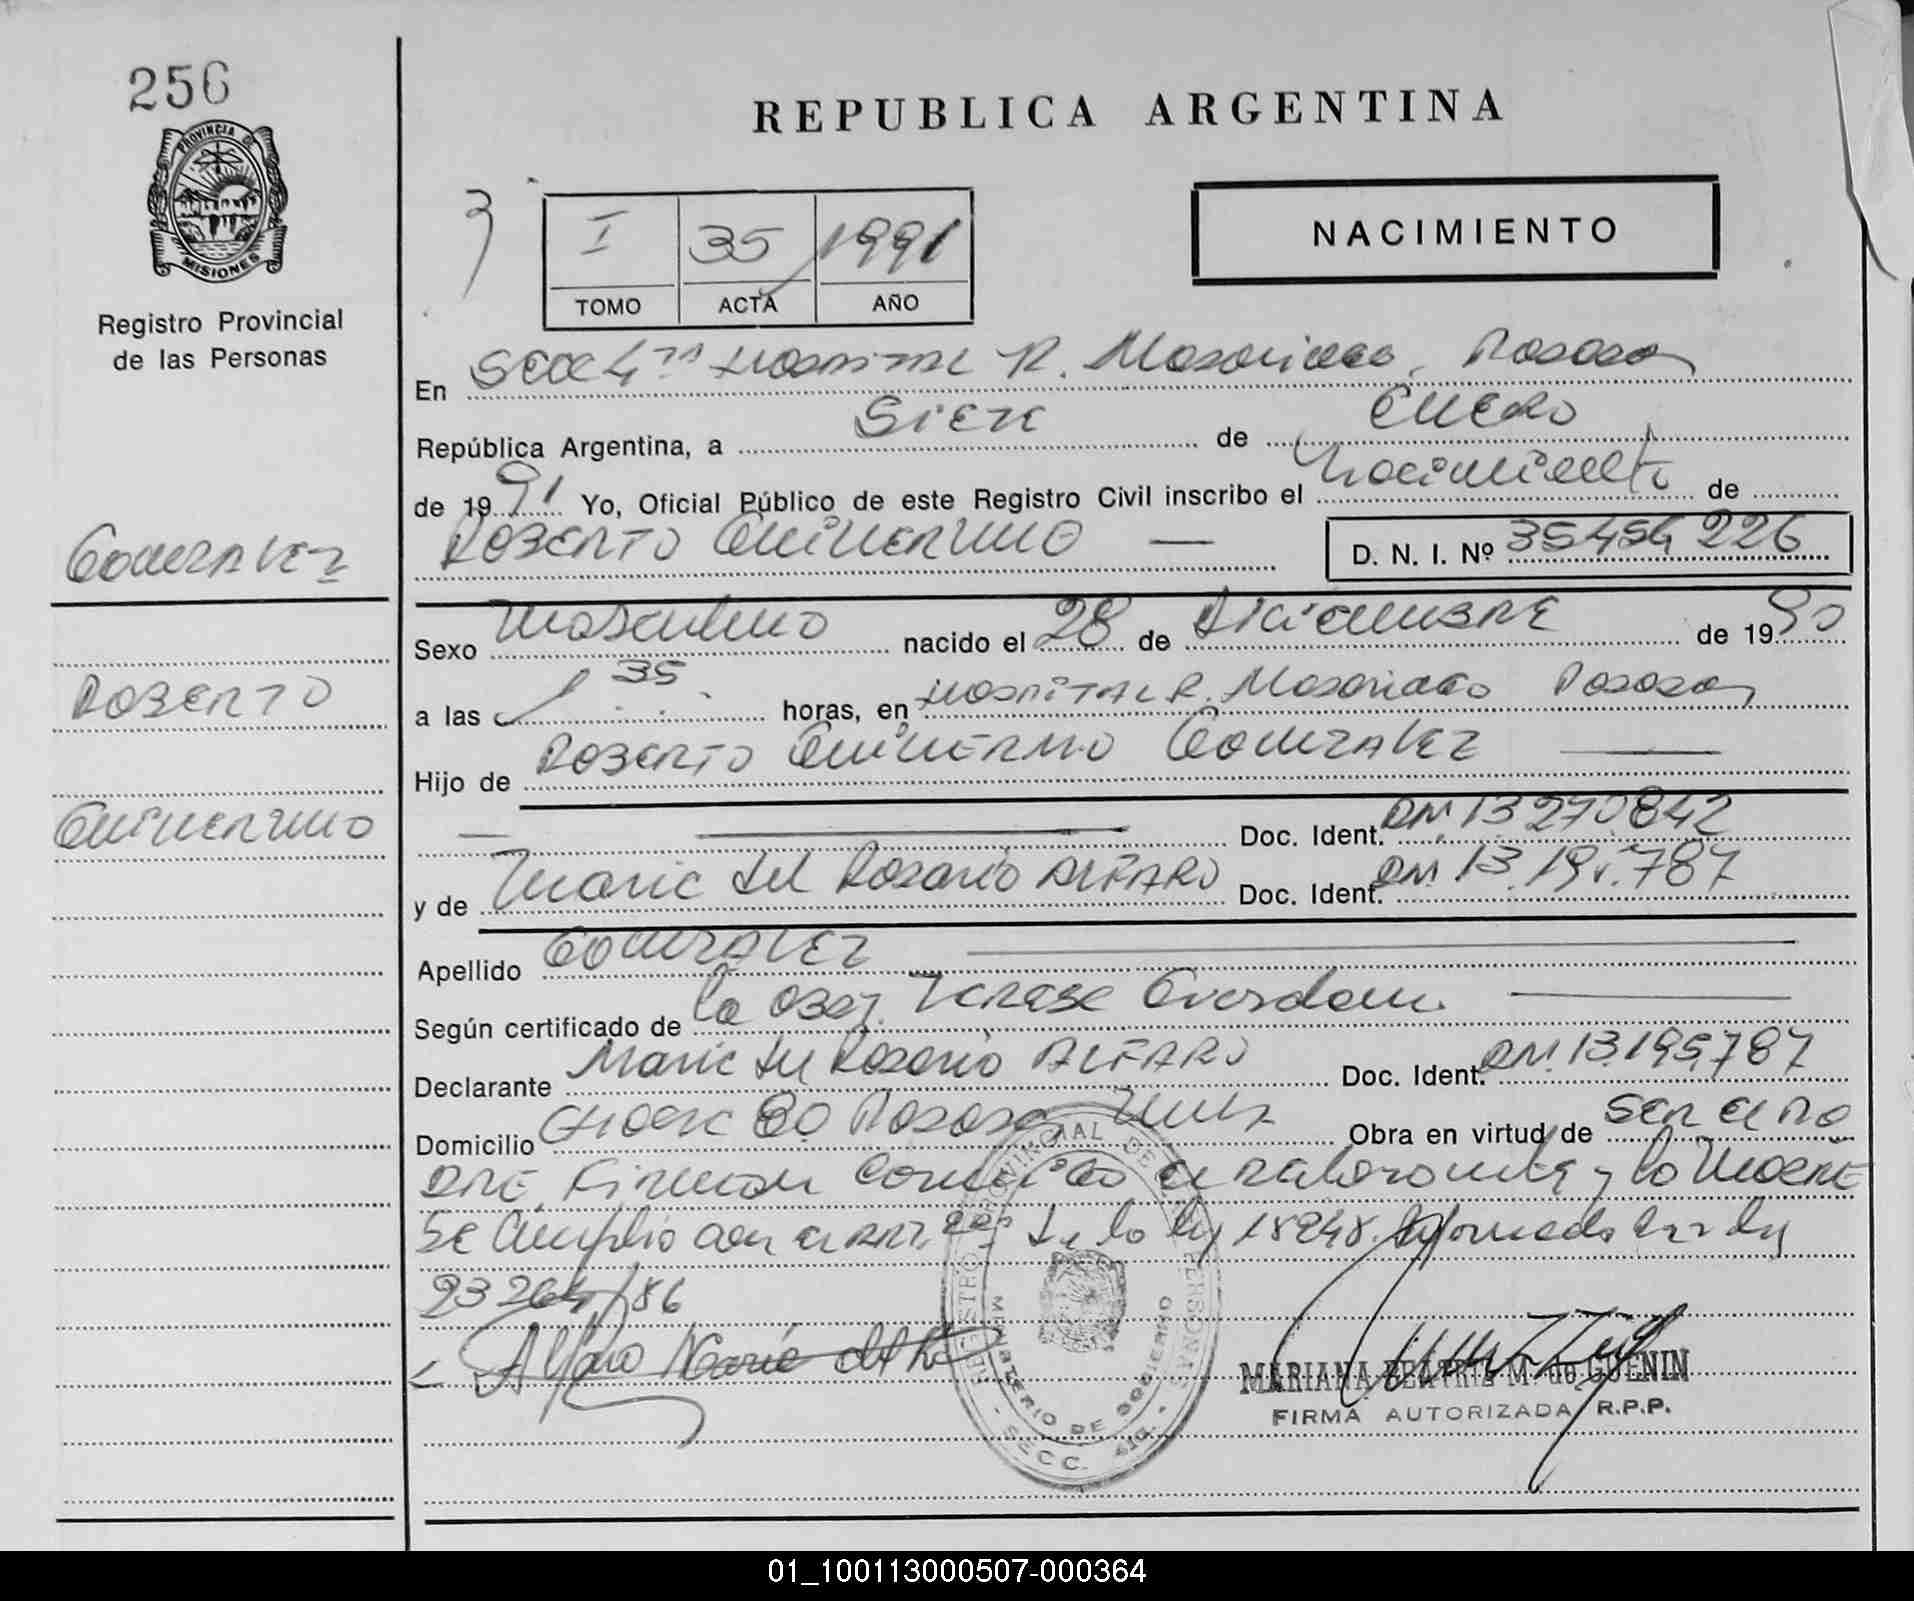 256
PROVINCIA DE
MISIONES
Registro Provincial
de las Personas
REPUBLICA ARGENTINA
NACIMIENTO
I 35 1991
TOMO ACTA AÑO
En Secc 4ta Hospital R. Madariaga, Posadas
República Argentina, a Siete de Enero
de 1991 Yo, Oficial Público de este Registro Civil inscribo el Nacimiento de
Roberto Guillermo — D. N. I. Nº 35454226
Gonzalez
Roberto
Guillermo
Sexo Masculino nacido el 28 de Diciembre de 1990
a las 1 35 horas, en Hospital R. Madariaga Posadas
Hijo de Roberto Guillermo Gonzalez
Doc. Ident. DNI 13270842
y de Maria del Rosario ALFARO Doc. Ident. DNI. 13.195.787
Apellido Gonzalez
Según certificado de la Obst. Terese
Declarante Maria del Rosario ALFARO Doc. Ident. DNI. 13.195.787
Domicilio 80 Posadas Mnes Obra en virtud de ser el Pa
dre. Firman conmigo el y la Madre
Se Cumplió con el Art. de la ley 18248. Informado Ley
23264/86
Alfaro Maria del R
REGISTRO PROVINCIAL DE LAS PERSONAS
MINISTERIO DE GOBIERNO
SECC. 4ta.
MARIANA BEATRIZ M. de GUENIN
FIRMA AUTORIZADA R.P.P.
01_100113000507-000364